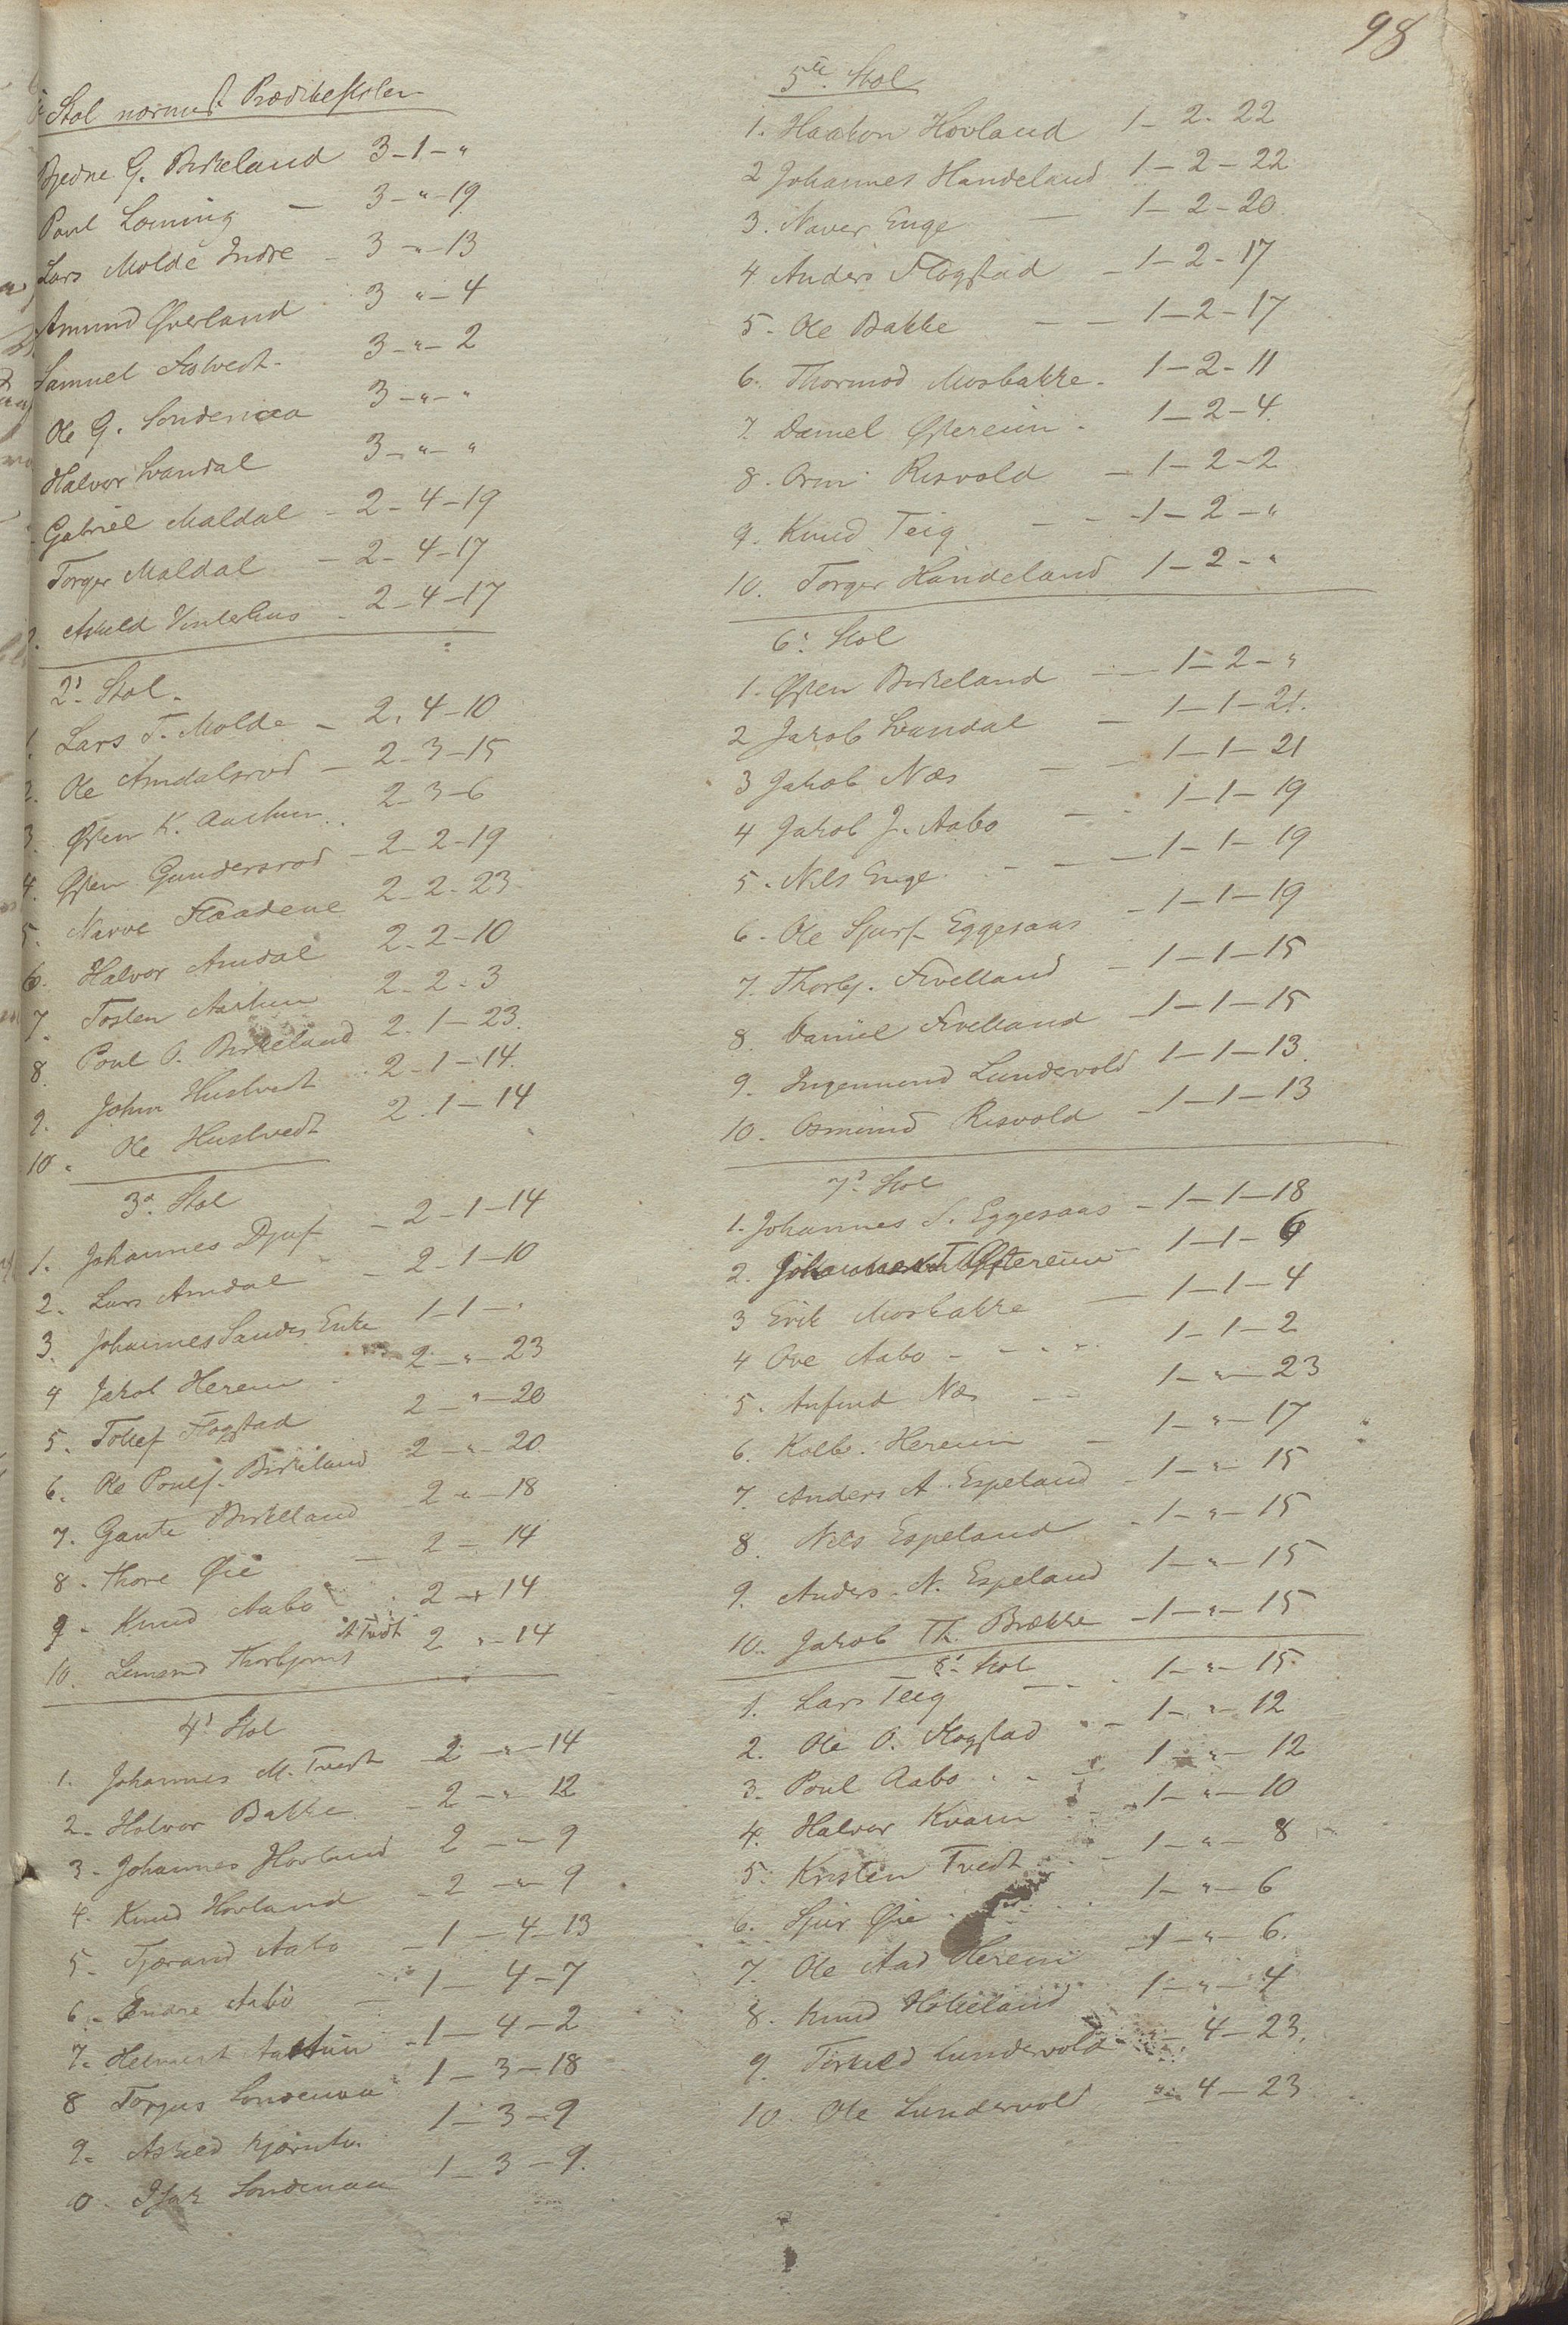 98
Stol nærmest Prædikestolen
Bjedne G. Birkeland 3-1-"
Poul Løining - 3-"-19
Lars Molde Indre - 3-"-13
Amund Øverland 3 "-4
Samuel 3-"-2
Ole G. Søndenaa 3-"-"
Halvor Svandal 3-"-"
Gabriel Maldal - 2-4-19
Torger Maldal - 2-4-17
Askild Vinterhus - 2-4-17
2' Stol.
1. Lars T. Molde - 2. 4-10
2. Ole Amdalsrød - 2-3-15
3. Østen K. Aarthun.. 2-3-6
4. Østen Gundersrød - 2-2-19
5. Narve Flaadene 2-2-23
6. Halvor Amdal 2-2-10
7. Tosten Aarthun 2-2-3
8. Poul O. Birkeland 2.1-23.
9. John Huslvedt 2-1-14.
10. Ole Huslvedt 2.1-14
3' Stol
1. Johannes Djuf - 2-1-14
2. Lars Amdal - 2-1-10
3. Johannes Sandes Enke 1-1-"
4 Jakob Hereim - 2-"-23
5. Tollef Flogstad 2-"-20
6. Ole Pouls. Birkeland 2-"-20
7. Gaute Birkeland - 2 "-18
8. Thore Øie - 2 - 14
9. Knud Aabo 2 - 14
10. Thorbjørns Tvedt 2 "-14
4' Stol
1. Johannes M. Tvedt 2 -"-14
2. Halvor Bakke - 2 -"-12
3. Johannes Hovland 2 -"-9
4. Knud Hovland - 2 -"-9
5. Tjærand Aabo - 1 - 4-13
6. Endre Aabo - 1 - 4-7
7. Helvert Aarthun - 1 - 4-2
8 Torjus Søndenaa 1 - 3-18
9. Askild 1 - 3-9
0. Isak Søndenaa 1-3-9.
5te Stol
1. Haakon Hovland 1-2-22
2 Johannes Handeland 1-2-22
3. Naver Enge - 1-2-20.
4 Anders Flogstad - 1-2-17
5. Ole Bakke - - 1-2-17
6. Thormod Mosbakke - 1-2-11
7. Daniel Østereim - 1-2-4.
8. Orm Risvold - 1-2-2
9. Knud Teig - - 1-2-"
10. Torger Handeland 1-2-"
6' Stol
1. Østen Birkeland - - 1-2-"
2 Jakob Svandal - 1-1-21.
3 Jakob Næs - - 1-1-21
4 Jakob J. Aabo - - 1-1-19
5. Nils Enge - - - 1-1-19
6. Ole Sjurs. Eggesaas - 1-1-19
7. Thorbj. Fivelland - 1-1-15
8. Daniel Fivelland - 1-1-15
9. Ingemund Lundevold 1-1-13.
10. Osmund Risvold - 1-1-13
7' Stol
1. Johannes S. Eggesaas - 1-1-18
2. Johannes T Østereim - 1-1-6
3 Erik Mosbakke - 1-1-4
4 Ove Aabo - - - 1-1-2
5. Anfind Næs - - 1-"-23
6. Kolb. Hereim - 1-"-17
7. Anders A. Espeland - 1-"-15
8. Nils Espeland - 1-"-15
9. Anders N. Espeland 1-"-15
10. Jakob Th. Brække - 1-"-15
8' Stol
1. Lars Teig - - 1-"-15
2. Ole O. Flogstad - 1-"-12
3. Poul Aabo - - 1-"-12
4. Halvor Kvam - - 1-"-10
5. Kristen Tvedt - - 1-"-8
6. Sjur Øie - 1-"-6
7. Ole Aad Hereim - 1-"-6.
8. Knud 1-"-4
9. Torkild Lundevold "-4-23.
10. Ole Lundevold "-4-23